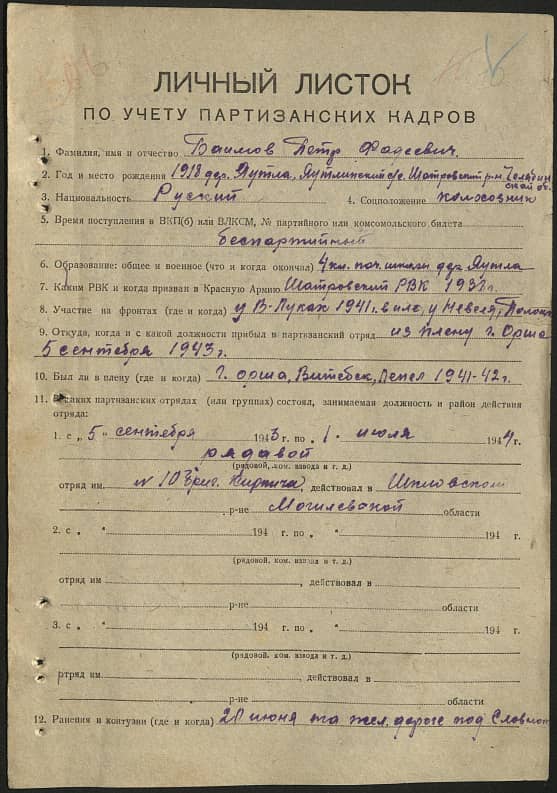 ЛИЧНЫЙ ЛИСТОК
ПО УЧЕТУ ПАРТИЗАНСКИХ КАДРОВ
1. Фамилия, имя и отчество Баимов Петр Фадеевич.
2. Год и место рождения 1918 дер. Яутла, Яутлинский с/с. Шатровский р-н Челябин
ской об.
3. Национальность Руский 4. Соцположение колхозник
5. Время поступления в ВКП(б) или ВЛКСМ, № партийного или комсомольского билета
беспартийный
6. Образование: общее и военное (что и когда окончал) 4 кл. нач. школы дер. Яутла
7. Каким РВК и когда призван в Красную Армию Шатровский РВК 1939 г.
8. Участие на фронтах (где и когда) у В-Луках 1941 г.
9. Откуда, когда и с какой должности прибыл в партизанский отряд из плену г. Орша
5 сентября 1943 г.
10. Был ли в плену (где и когда) г. Орша, Витебск, Лепел 1941-42 г.
11. В каких партизанских отрядах (или группах) состоял, занимаемая должность и район действия
отряда:
1. с „5" сентября 1943 г. по „1. июля 1944 г.
рядавой
(рядовой, ком. взвода и т. д.)
отряд им. № 10 бриг. Кирпича, действовал в Шкловском
р-не Могилевской области
2. с „ " 194 г. по „ " 194 г.
(рядовой, ком. взвода и т. д.)
отряд им , действовал в
р-не области
3. с „ " 194 г. по „ " 194 г.
(рядовой, ком. взвода и т. д.)
отряд им. , действовал в
р-не области
12. Ранения и контузии (где и когда) 20 июня на жел. дороге под Славное